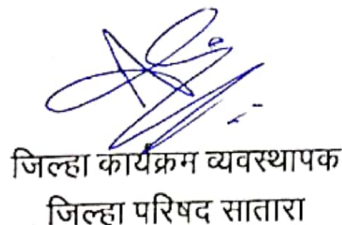 जिल्हा कार्यक्रम व्यवस्थापक
जिल्हा परिषद सातारा